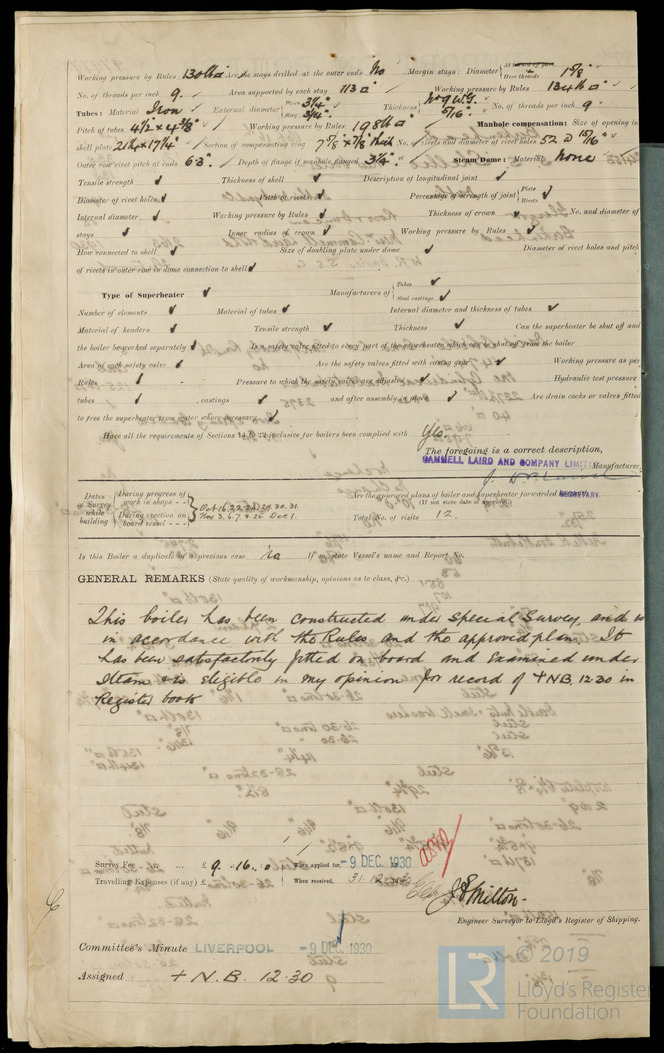 Working pressure by Rules 130 lb □" Are the stays drilled at the outer ends No Margin stays: Diameter { At turned off part, or Over threads 1 5/8"
No. of threads per inch 9. Area supported by each stay 113 □" Working pressure by Rules 134 lb □"
Tubes: Material Iron External diameter { Plain 3 1/4" Stay 3 1/4" Thickness { No 9 W.G. 5/16" No. of threads per inch 9
Pitch of tubes 4 1/2 x 4 3/8" Working pressure by Rules 198 lb □" Manhole compensation: Size of opening in
shell plate 21 1/4 x 17 1/4" Section of compensating ring 7 5/8" x 7/8" thick No. of rivets and diameter of rivet holes 52 @ 15/16"
Outer row rivet pitch at ends 6.3". Depth of flange if manhole flanged 3 3/4" Steam Dome: Material None
Tensile strength Thickness of shell Description of longitudinal joint
Diameter of rivet holes Pitch of rivets Percentage of strength of joint { Plate Rivets
Internal diameter Working pressure by Rules Thickness of crown No. and diameter of
stays Inner radius of crown Working pressure by Rules
How connected to shell Size of doubling plate under dome Diameter of rivet holes and pitch
of rivets in outer row in dome connection to shell
Type of Superheater Manufacturers of { Tubes Steel castings
Number of elements Material of tubes Internal diameter and thickness of tubes
Material of headers Tensile strength Thickness Can the superheater be shut off and
the boiler be worked separately Is a safety valve fitted to every part of the superheater which can be shut off from the boiler
Area of each safety valve Are the safety valves fitted with easing gear Working pressure as per
Rules Pressure to which the safety valves are adjusted Hydraulic test pressure
tubes , castings and after assembly in place Are drain cocks or valves fitted
to free the superheater from water where necessary
Have all the requirements of Sections 14 to 22 inclusive for boilers been complied with Yes.
The foregoing is a correct description,
CAMMELL LAIRD AND COMPANY LIMITED Manufacturer.
SECRETARY.
Dates of Survey while building { During progress of work in shops - - Oct 16. 22. 24. 29. 30. 31. Are the approved plans of boiler and superheater forwarded
(If not state date of approval)
During erection on board vessel - - - Nov 3. 6. 7. 8. 26 Dec 1. Total No. of visits 12.
Is this Boiler a duplicate of a previous case no If so, state Vessel's name and Report No.
GENERAL REMARKS (State quality of workmanship, opinions as to class, &c.)
This boiler has been constructed under special survey, and is
in accordance with the Rules and the approved plan. It
has been satisfactorily fitted on board and examined under
steam & is eligible in my opinion for record of + N.B. 12.30 in
Register book
Survey Fee ... £ 9 . 16 . 0 When applied for, -9 DEC. 1930
Travelling Expenses (if any) £ When received, 31.12.1930
J. S. Milton.
Engineer Surveyor to Lloyd's Register of Shipping.
Committee's Minute LIVERPOOL -9 DEC 1930
Assigned + N.B. 12.30
LR © 2019
Lloyd's Register
Foundation